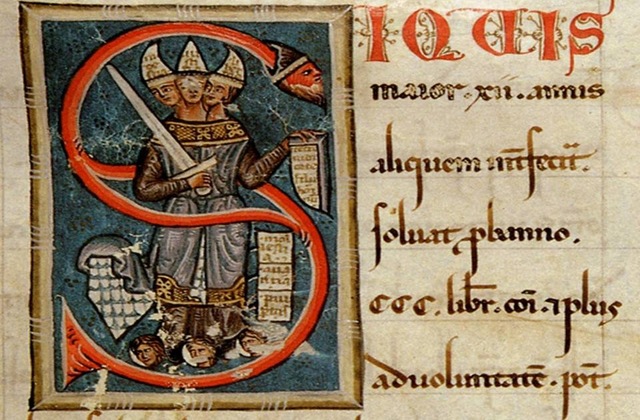 SIQUIS
maior · xii · annis
aliquem intfecit.
soluat p banno .
CCC · libr · coi · 7 plus
ad voluntatē · pot.